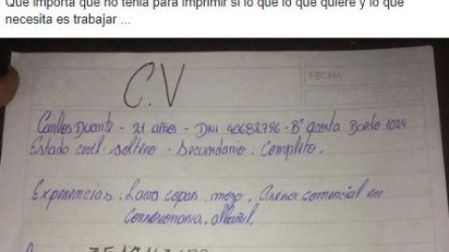 Que importa que no tenía para imprimir si lo que lo que quiere y lo que
necesita es trabajar ...
FECHA
C.V
Carlos Duarte - 21 años - DNI 40682796 - Bº acosta Bordo 1024
Estado civil: soltero - Secundario: Completo.
Experiencias: Lava copas, mozo, comercial en
albañil.